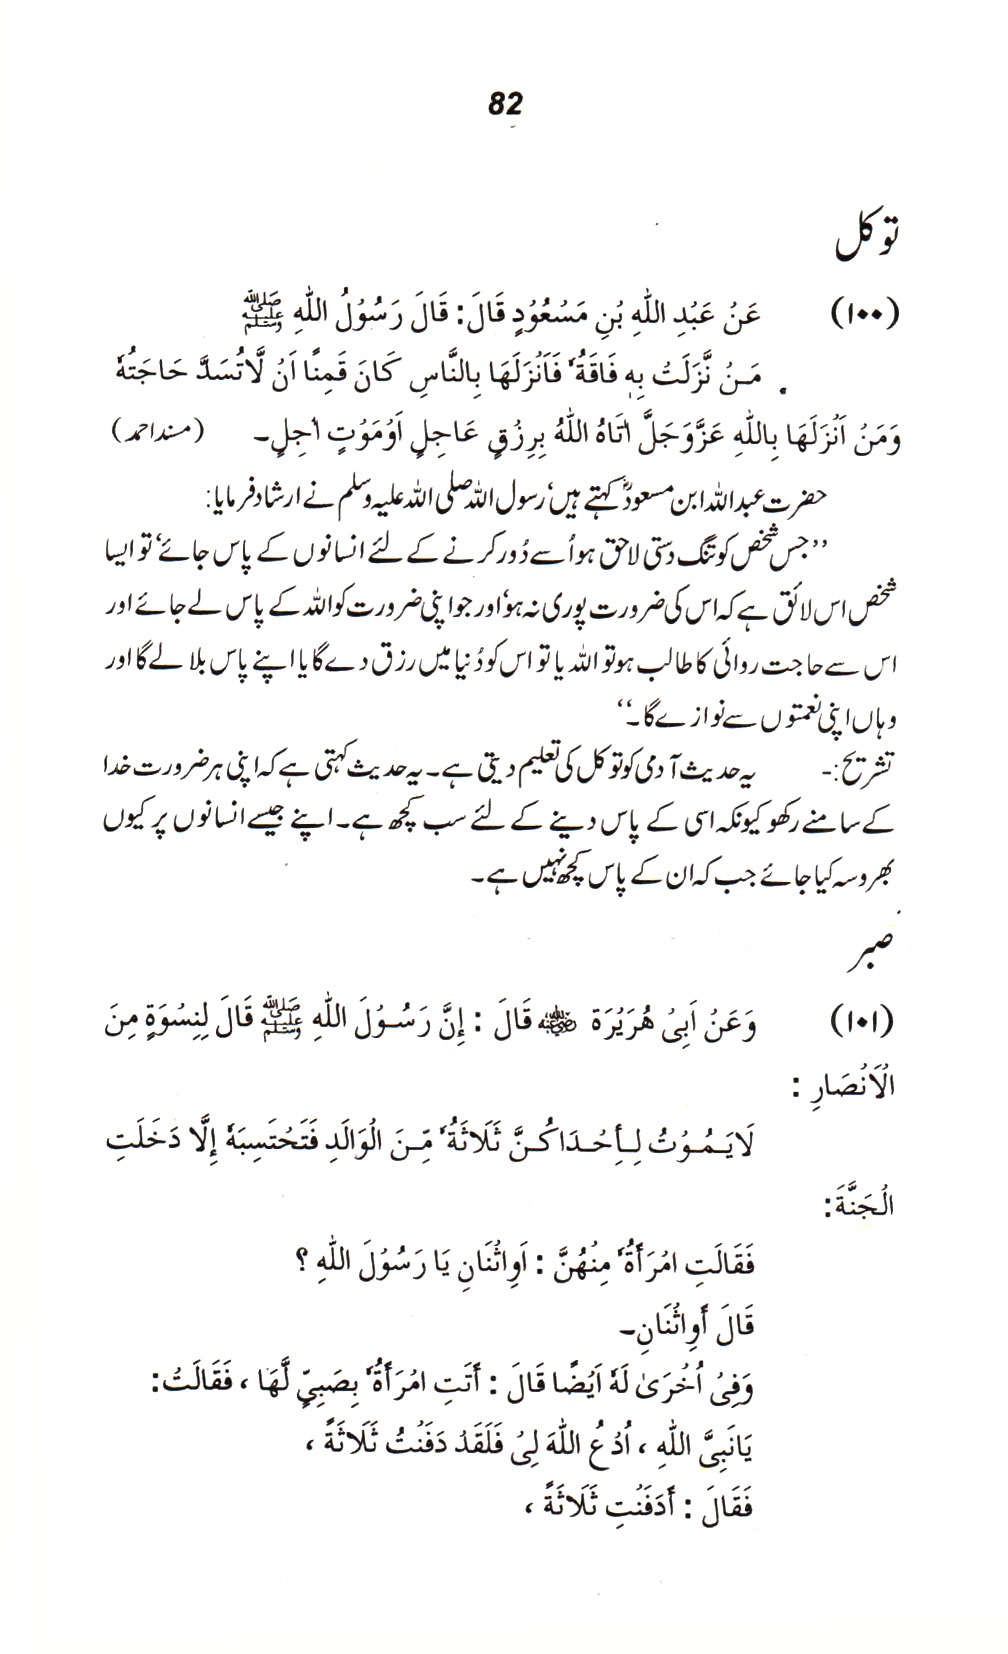 82
توکل
(۱۰۰) عَنْ عَبْدِ اللّٰهِ بْنِ مَسْعُوْدٍ قَالَ: قَالَ رَسُوْلُ اللّٰهِ ﷺ
مَنْ نَّزَلَتْ بِهٖ فَاقَةٌ فَاَنْزَلَهَا بِالنَّاسِ كَانَ قَمِنًا اَنْ لَّاتُسَدَّ حَاجَتُهٗ
وَمَنْ اَنْزَلَهَا بِاللّٰهِ عَزَّوَجَلَّ اٰتَاهُ اللّٰهُ بِرِزْقٍ عَاجِلٍ اَوْمَوْتٍ اٰجِلٍ۔ (مسند احمد)
حضرت عبداللہ ابن مسعودؓ کہتے ہیں‘ رسول اللہ صلی اللہ علیہ وسلم نے ارشاد فرمایا:
’’جس شخص کو تنگ دستی لاحق ہو اُسے دُور کرنے کے لئے انسانوں کے پاس جائے‘ تو ایسا
شخص اس لائق ہے کہ اس کی ضرورت پوری نہ ہو‘ اور جو اپنی ضرورت کو اللہ کے پاس لے جائے اور
اس سے حاجت روائی کا طالب ہو تو اللہ یا تو اس کو دُنیا میں رزق دے گا یا اپنے پاس بلا لے گا اور
وہاں اپنی نعمتوں سے نوازے گا۔‘‘
تشریح:- یہ حدیث آدمی کو توکل کی تعلیم دیتی ہے۔ یہ حدیث کہتی ہے کہ اپنی ہر ضرورت خدا
کے سامنے رکھو کیونکہ اسی کے پاس دینے کے لئے سب کچھ ہے۔ اپنے جیسے انسانوں پر کیوں
بھروسہ کیا جائے جب کہ ان کے پاس کچھ نہیں ہے۔
صبر
(۱۰۱) وَعَنْ اَبِیْ هُرَیْرَة رضي الله عنه قَالَ : إِنَّ رَسُوْلَ اللّٰهِ ﷺ قَالَ لِنِسْوَةٍ مِنَ
الْاَنْصَارِ :
لَایَمُوْتُ لِـأِحْدَاكُنَّ ثَلَاثَةٌ مِّنَ الْوَالَدِ فَتَحْتَسِبَهٗ إِلَّا دَخَلَتِ
الْجَنَّةَ:
فَقَالَتِ امْرَأَةٌ مِنْهُنَّ : اَوِاثْنَانِ یَا رَسُوْلَ اللّٰهِ ؟
قَالَ أَوِاثْنَانِ۔
وَفِیْ اُخْرَیٰ لَهٗ اَیْضًا قَالَ : أَتَتِ امْرَأَةٌ بِصَبِیٍّ لَّهَا ، فَقَالَتْ:
یَانَبِیَّ اللّٰهِ ، اُدْعُ اللّٰهَ لِیْ فَلَقَدْ دَفَنْتُ ثَلَاثَةً ،
فَقَالَ : أَدَفَنْتِ ثَلَاثَةً ،